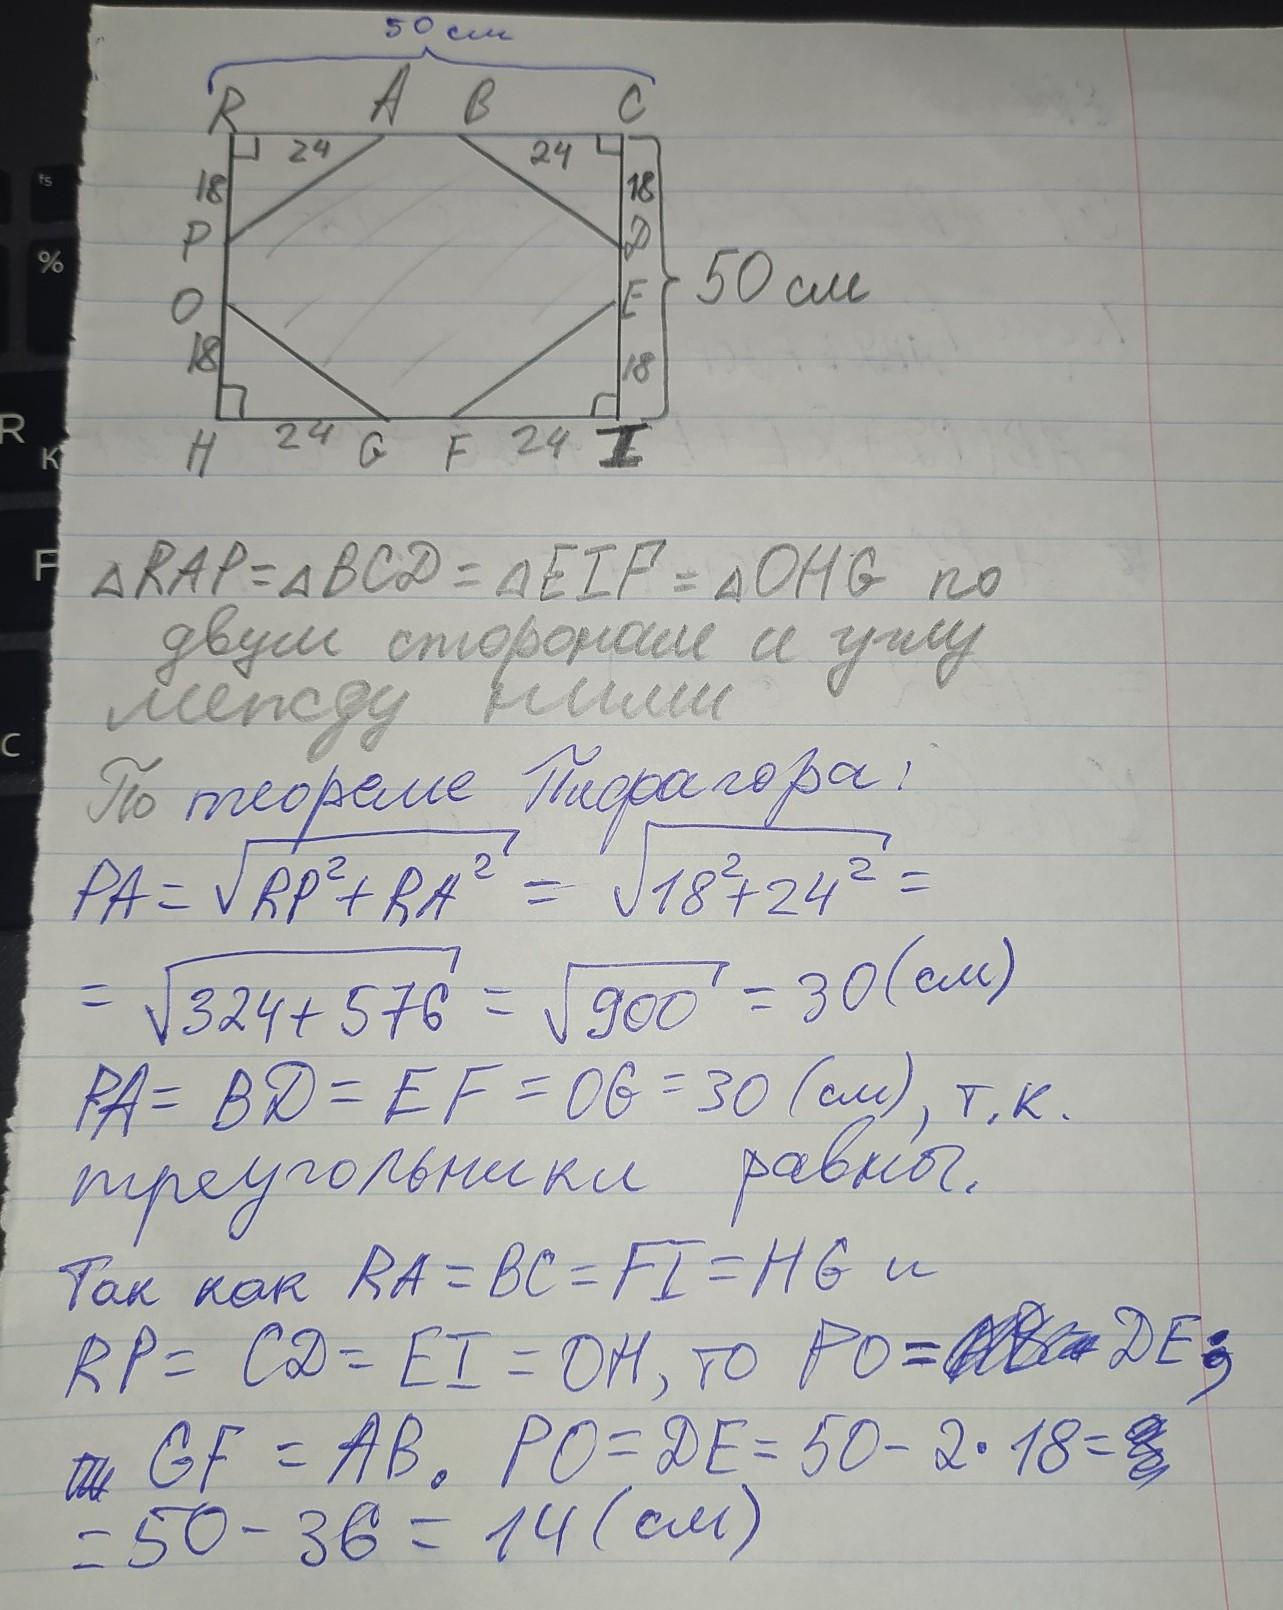 50 см
R A B C
24 24
18 18
P D
O E
50 см
18 18
H 24 G F 24 I
△RAP = △BCD = △EIF = △OHG по
двум сторонам и углу
между ними
По теореме Пифагора:
PA = √RP²+RA² = √18²+24² =
= √324+576 = √900 = 30 (см)
PA = BD = EF = OG = 30 (см), т.к.
треугольники равны.
Так как RA = BC = FI = HG и
RP = CD = EI = OH, то PO = DE;
GF = AB. PO = DE = 50 - 2·18 =
= 50 - 36 = 14 (см)
R
K
F
C
%
f5